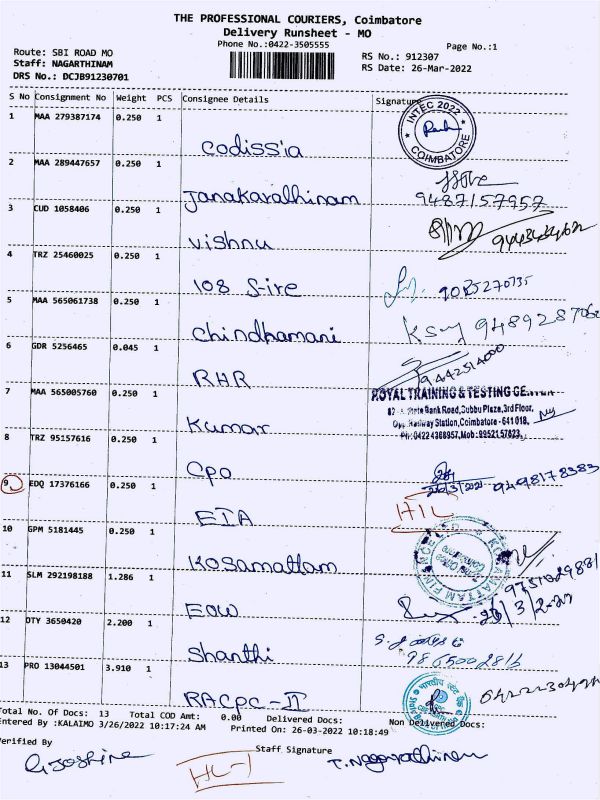 THE PROFESSIONAL COURIERS, Coimbatore
Delivery Runsheet - MO
Phone No.:0422-3505555
Page No.:1
Route: SBI ROAD MO
Staff: NAGARTHINAM
DRS No.: DCJB91230701
RS No.: 912307
RS Date: 26-Mar-2022
S No Consignment No Weight PCS Consignee Details Signature
1 MAA 279387174 0.250 1 Codissia
INTEC 2022 COIMBATORE
2 MAA 289447657 0.250 1 Janakarathinam
9487157957
3 CUD 1058406 0.250 1 Vishnu
4 TRZ 25460025 0.250 1 108 S-ire
9085270735
5 MAA 565061738 0.250 1 Chindhamani
6 GDR 5256465 0.045 1 RHR
9442514000
7 MAA 565005760 0.250 1 Kumar
ROYAL TRAINING & TESTING CENTER
State Bank Road, Subbu Plaza, 3rd Floor,
Opp. Railway Station, Coimbatore - 641 018.
8 TRZ 95157616 0.250 1 CPO
26/3/2022 9498178383
9 EDQ 17376166 0.250 1 EIA
HIL
10 GPM 5181445 0.250 1 Kosamattam
KOSAMATTAM FINANCE
11 SLM 292198188 1.286 1 EOW
12 DTY 3650420 2.200 1 Shanthi
13 PRO 13044501 3.910 1 RACPC-II
Total No. Of Docs: 13 Total COD Amt: 0.00 Delivered Docs: Non Delivered Docs:
Entered By :KALAIMO 3/26/2022 10:17:24 AM Printed On: 26-03-2022 10:18:49
Verified By Staff Signature
HL-1 T. Nagarathinam